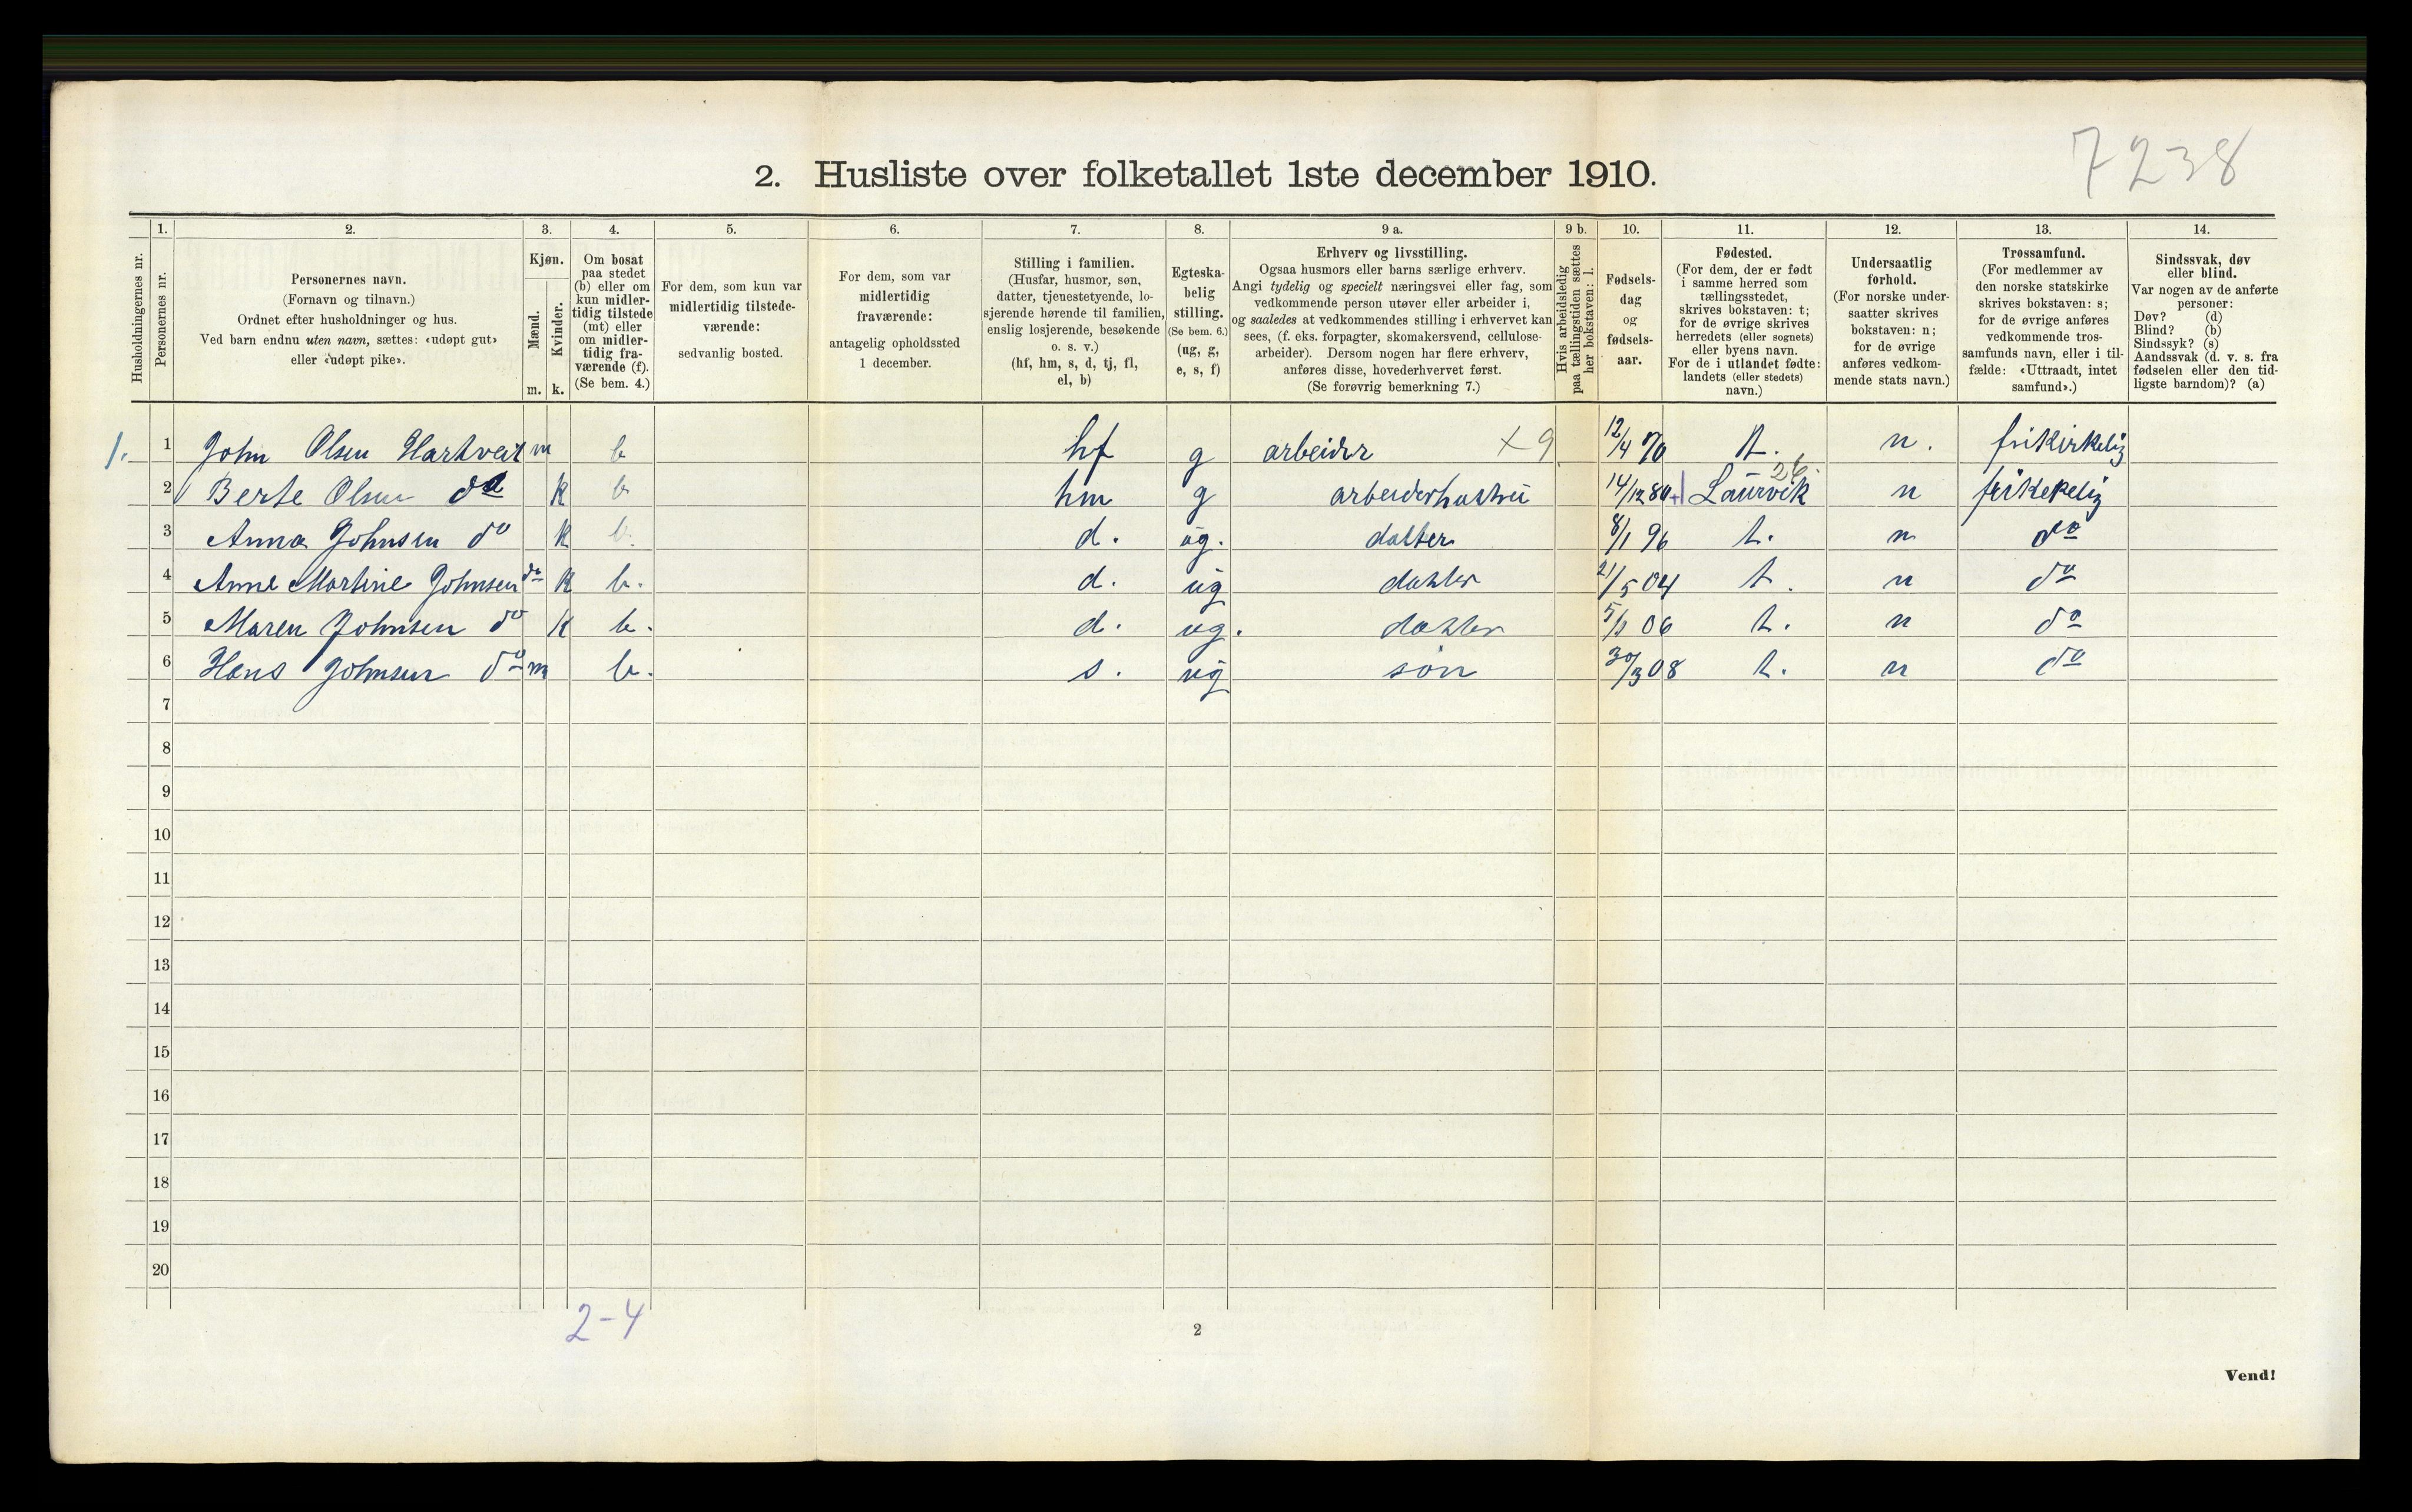 7238
2. Husliste over folketallet 1ste december 1910.
Husholdningernes nr.
1.
Personernes nr.
2.
Personernes navn.
(Fornavn og tilnavn.)
Ordnet efter husholdninger og hus.
Ved barn endnu uten navn, sættes: «udøpt gut»
eller «udøpt pike».
3.
Kjøn.
Mænd.
m.
Kvinder.
k.
4.
Om bosat
paa stedet
(b) eller om
kun midler-
tidig tilstede
(mt) eller
om midler-
tidig fra-
værende (f).
(Se bem. 4.)
5.
For dem, som kun var
midlertidig tilstede-
værende:
sedvanlig bosted.
6.
For dem, som var
midlertidig
fraværende:
antagelig opholdssted
1 december.
7.
Stilling i familien.
(Husfar, husmor, søn,
datter, tjenestetyende, lo-
sjerende hørende til familien,
enslig losjerende, besøkende
o. s. v.)
(hf, hm, s, d, tj, fl,
el, b)
8.
Egteska-
belig
stilling.
(Se bem. 6.)
(ug, g,
e, s, f)
9 a.
Erhverv og livsstilling.
Ogsaa husmors eller barns særlige erhverv.
Angi tydelig og specielt næringsvei eller fag, som
vedkommende person utøver eller arbeider i,
og saaledes at vedkommendes stilling i erhvervet kan
sees, (f. eks. forpagter, skomakersvend, cellulose-
arbeider). Dersom nogen har flere erhverv,
anføres disse, hovederhvervet først.
(Se forøvrig bemerkning 7.)
9 b.
Hvis arbeidsledig
paa tællingstiden sættes
her bokstaven: l.
10.
Fødsels-
dag
og
fødsels-
aar.
11.
Fødested.
(For dem, der er født
i samme herred som
tællingsstedet,
skrives bokstaven: t;
for de øvrige skrives
herredets (eller sognets)
eller byens navn.
For de i utlandet fødte:
landets (eller stedets)
navn.)
12.
Undersaatlig
forhold.
(For norske under-
saatter skrives
bokstaven: n;
for de øvrige
anføres vedkom-
mende stats navn.)
13.
Trossamfund.
(For medlemmer av
den norske statskirke
skrives bokstaven: s;
for de øvrige anføres
vedkommende tros-
samfunds navn, eller i til-
fælde: «Uttraadt, intet
samfund».)
14.
Sindssvak, døv
eller blind.
Var nogen av de anførte
personer:
Døv? (d)
Blind? (b)
Sindssyk? (s)
Aandssvak (d. v. s. fra
fødselen eller den tid-
ligste barndom)? (a)
1. 1 John Olsen Hartveit m b hf g arbeider x 9 12/4 70 t. n. frikirkelig
2 Berte Olsen do k b hm g arbeiderhustru 14/12 80 Laurvik 26 n
3 Anna Johnsen do k b. d. ug. datter 8/1 96 t. n do
4 Anne Martine Johnsen do k b. d. ug datter 21/5 04 t. n do
5 Maren Johnsen do k b. d. ug. datter 06 t. n do
6 Hans Johnsen do m b. s. ug søn 30/3 08 t. n do
7
8
9
10
11
12
13
14
15
16
17
18
19
20
2-4
2
Vend!